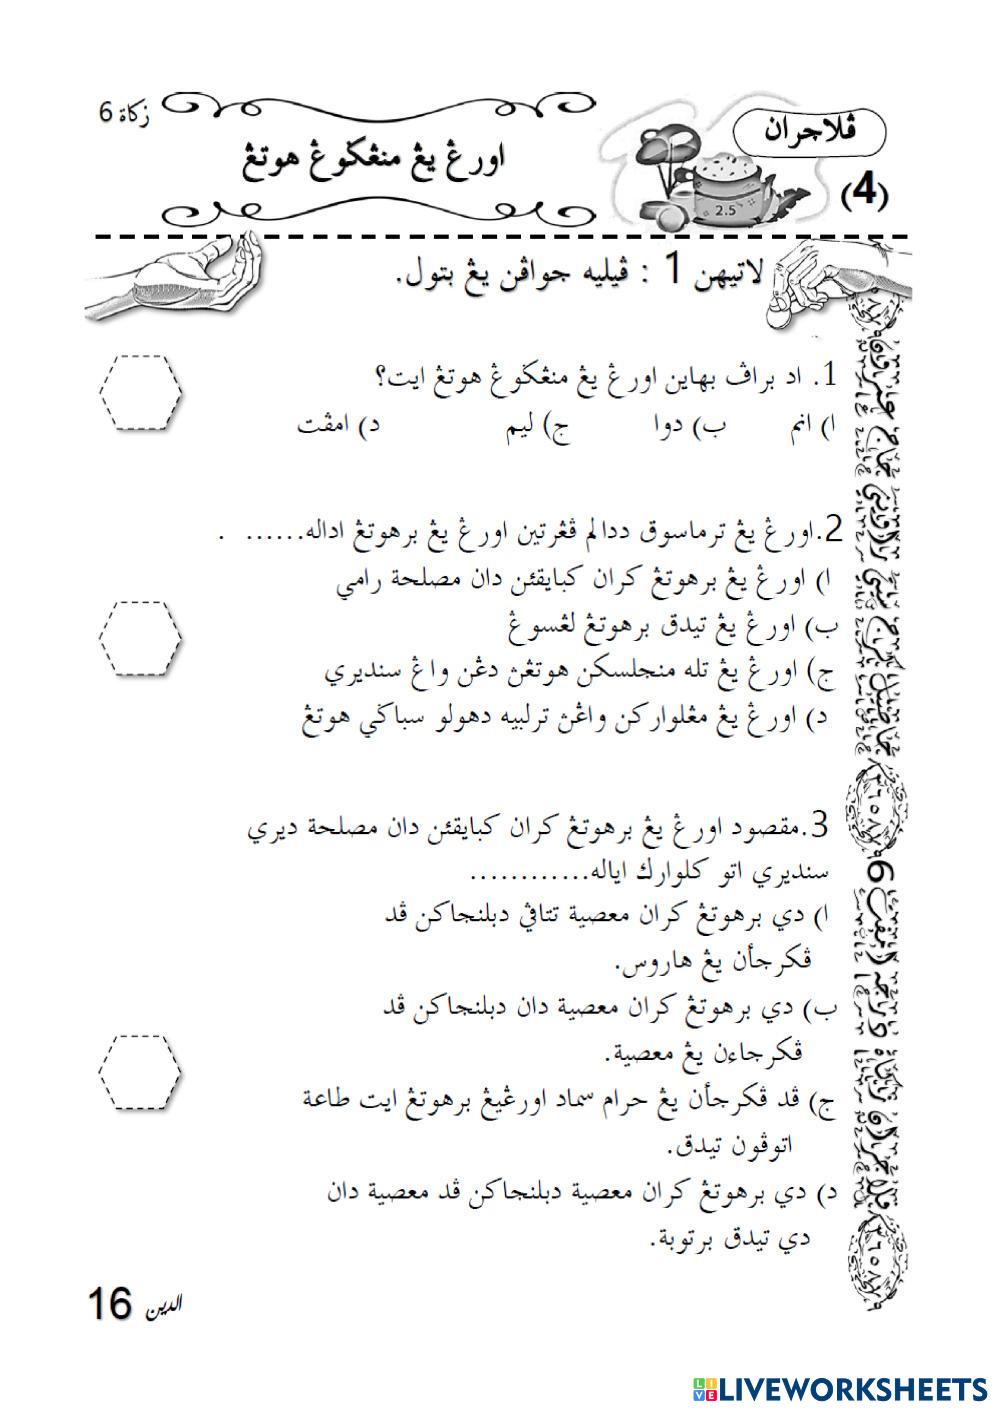 زكاة 6
ڤلاجران
(4)
2.5
اورڠ يڠ منڠݢوڠ هوتڠ
لاتيهن 1 : ڤيليه جواڤن يڠ بتول.
1. اد براڤ بهاين اورڠ يڠ منڠݢوڠ هوتڠ ايت؟
ا) انم ب) دوا ج) ليم د) امڤت
2.اورڠ يڠ ترماسوق ددالم ڤڠرتين اورڠ يڠ برهوتڠ اداله...... .
ا) اورڠ يڠ برهوتڠ كران كبايقئن دان مصلحة رامي
ب) اورڠ يڠ تيدق برهوتڠ لڠسوڠ
ج) اورڠ يڠ تله منجلسكن هوتڠڽ دڠن واڠ سنديري
د) اورڠ يڠ مڠلواركن واڠڽ ترلبيه دهولو سباݢي هوتڠ
3.مقصود اورڠ يڠ برهوتڠ كران كبايقئن دان مصلحة ديري
سنديري اتو كلوارݢ اياله............
ا) دي برهوتڠ كران معصية تتاڤي دبلنجاكن ڤد
ڤكرجأن يڠ هاروس.
ب) دي برهوتڠ كران معصية دان دبلنجاكن ڤد
ڤكرجاءن يڠ معصية.
ج) ڤد ڤكرجأن يڠ حرام سماد اورڠيڠ برهوتڠ ايت طاعة
اتوڤون تيدق.
د) دي برهوتڠ كران معصية دبلنجاكن ڤد معصية دان
دي تيدق برتوبة.
الدين 16
LIVEWORKSHEETS